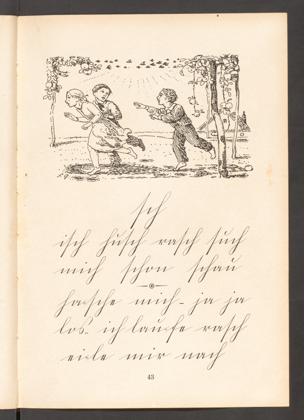 sch
isch husch rasch such
mich schon schau
ha-sche mich - ja ja
los ich lau-fe rasch
ei-le mir nach
43